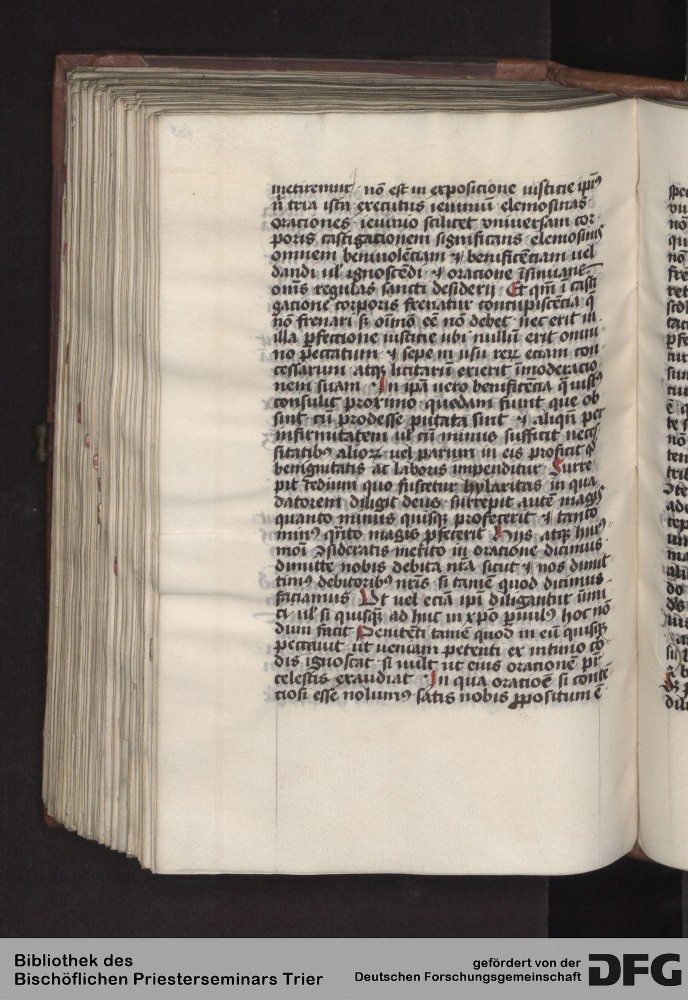 metiremur / nō est in expositione iusticie ip̄i⁹
n̄ tria ista executus ieiuniū elemosinas
orationes · ieiunio scilicet vniuersam cor
poris castigationem significans · elemosinis
omnem beniuolētiam ⁊ benificētiam uel
dandi ul' ignoscēdi · ⁊ oratione īsinuans
om̄s regulas sancti desiderij · Et qm̄ ī casti
gatione corporis frenatur concupiscētia q̄
nō frenari sꝫ oīno eē nō debet · nec erit in
illa ꝑfectione iusticie ubi nullū erit omni
no peccatum ⁊ sepe in usu reꝝ etiam con
cessarum atqꝫ licitarū exerit īmoderatio
nem suam · In ipā uero benificētia q̄ iust⁹
consulit proximo · quedam fiunt que ob
sint · cū prodesse putata sint · ⁊ aliqn̄ per
infirmitatem ul' cū minus sufficit neces
sitatib⁹ alioꝝ · uel parum in eis proficit q̄
benignitatis ac laboris impenditur · Surre
pit tedium quo fuscetur hylaritas in qua
datorem diligit deus · surrepit autē magis
quanto minus quisqꝫ profecerit · ⁊ tanto
min⁹ q̄nto magis ꝓfecerit · Hys atqꝫ hui⁹
moī ꝯsideratis merito in oratione dicimus
dimitte nobis debita nr̄a sicut ⁊ nos dimit
tim⁹ debitorib⁹ nr̄is · si tamē quod dicimus
faciamus · Ut uel eciā ip̄i diligantur inimi
ci · ul' si quisqꝫ ad huc in xp̄o ꝑuul⁹ hoc nō
dum facit · Penitēti tamē quod in eū quisqꝫ
peccauit ut ueniam petenti ex intimo cor
dis ignoscat · si uult ut eius orationē pr̄
celestis exaudiat · In qua oratiōe si conte
tiosi esse nolum⁹ satis nobis ꝓpositum ē
Bibliothek des
Bischöflichen Priesterseminars Trier
gefördert von der
Deutschen Forschungsgemeinschaft
DFG